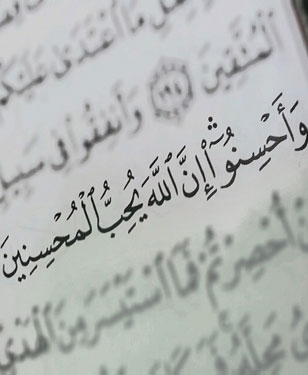 مَا ٱعْتَدَىٰ عَلَيْكُمْ
ٱلْمُتَّقِينَ ١٩٤ وَأَنفِقُوا۟ فِى سَبِيلِ
وَأَحْسِنُوٓا۟ إِنَّ ٱللَّهَ يُحِبُّ ٱلْمُحْسِنِينَ
أُحْصِرْتُمْ فَمَا ٱسْتَيْسَرَ مِنَ ٱلْهَدْىِ